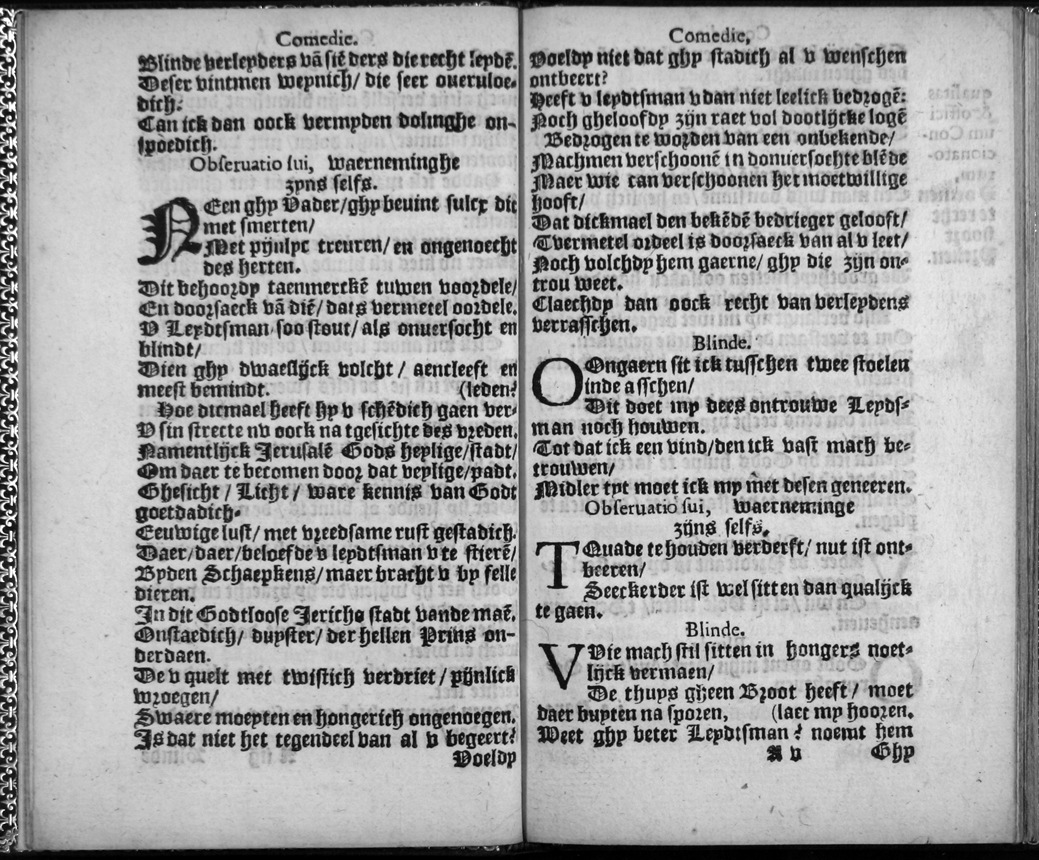 Comedie.
Blinde verleyders vā siēders die recht leydē.
Deser vintmen weynich/ die seer overvloe-
dich:
Can ick dan oock vermyden dolinghe on-
spoedich.
Observatio sui, waerneminghe
zyns selfs.
NEen ghy Vader/ghy bevint sulcx dit
met smerten/
Met pijnlyc treuren/ en ongenoecht
des herten.
Dit behoordy taenmerckē tuwen voordele/
En doorsaeck vā diē/ dats vermetel oordele.
V Leydtsman soo stout/ als onversocht en
blindt/
Dien ghy dwaeslijck volcht / aencleeft en
meest bemindt. (leden?
Hoe dicmael heeft hy v schēdich gaen ver-
V sin strecte nv oock na tgesichte des vreden.
Namentlijck Jerusalē Gods heylige/stadt/
Om daer te becomen door dat veylige/padt.
Ghesicht / Licht / ware kennis van Godt
goetdadich.
Eeuwige lust/ met vreedsame rust gestadich.
Daer/daer/beloefde v leydtsman v te stierē/
Byden Schaepkens/maer bracht v by felle
dieren.
In dit Godtloose Jericho stadt vande maē.
Onstaedich/ duyster/ der hellen Prins on-
derdaen.
De v quelt met twistich verdriet / pijnlick
wroegen/
Swaere moeyten en hongerich ongenoegen.
Is dat niet het tegendeel van al v begeert?
Voeldy
Comedie,
Voeldy niet dat ghy stadich al v wenschen
ontbeert?
Heeft v leydtsman v dan niet leelick bedrogē:
Noch gheloofdy zijn raet vol dootlijcke logē
Bedrogen te worden van een onbekende/
Machmen verschoonē in donversochte blēde
Maer wie can verschoonen het moetwillige
hooft/
Dat dickmael den bekēdē bedrieger gelooft/
Tvermetel ordeel is doorsaeck van al v leet/
Noch volchdy hem gaerne/ ghy die zijn on-
trou weet.
Claechdy dan oock recht van verleydens
verrasschen.
Blinde.
OOngaern sit ick tusschen twee stoelen
inde asschen/
Dit doet my dees ontrouwe Leyds-
man noch houwen.
Tot dat ick een vind/den ick vast mach be-
trouwen/
Midler tyt moet ick my met desen geneeren.
Observatio sui, waerneminge
zijns selfs.
TQuade te houden verderft/ nut ist ont-
beeren/
Seeckerder ist wel sitten dan qualijck
te gaen.
Blinde.
VVie mach stil sitten in hongers noet-
lijck vermaen/
De thuys gheen Broot heeft / moet
daer buyten na sporen, (laet my hooren.
Weet ghy beter Leydtsman? noemt hem
A v Ghy